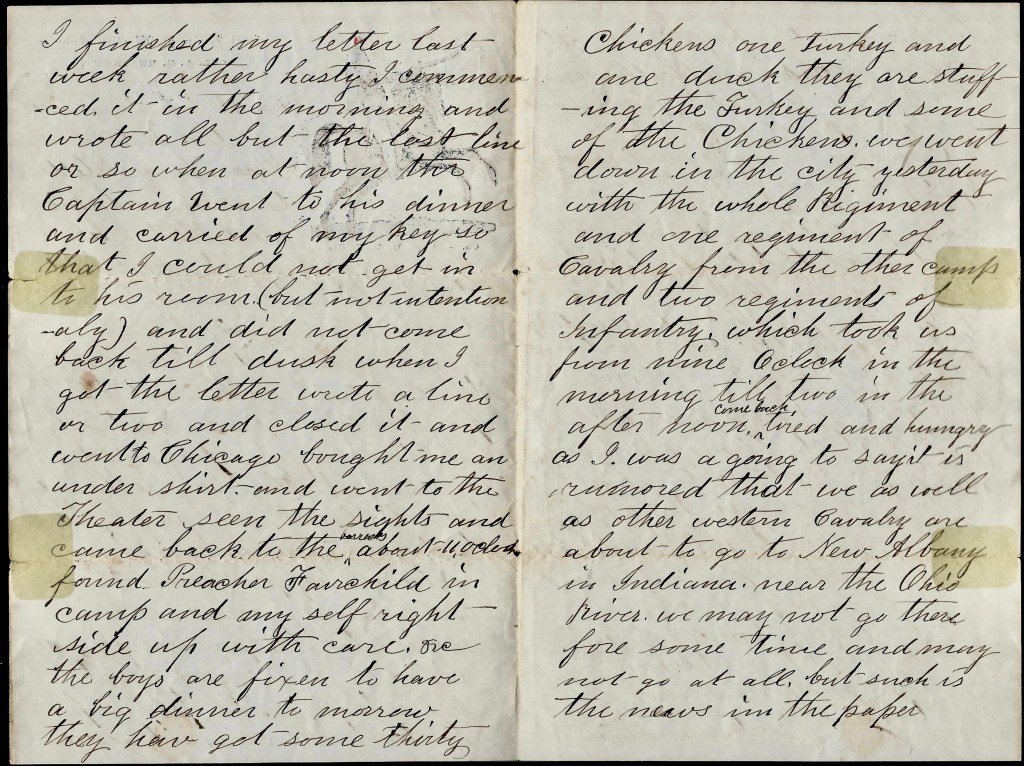 I finished my letter last
week rather hasty I commen
-ced. it in the morning and
wrote all but the last line
or so when at noon the
Captain went to his dinner
and carried of my key so
that I could not get in
to his room (but not intention
-aly) and did not come
back till dusk when I
got the letter wrote a line
or two and closed it and
went to Chicago bought me an
under shirt and went to the
Theater seen the sights and
came back to the barracks about 11, oclock
found Preacher Fairchild in
camp and my self right
side up with care. &c
the boys are fixen to have
a big dinner to morrow
they hav got some thirty
Chickens one turkey and
one duck they are stuff
-ing the Turkey and some
of the Chickens. we went
down in the city yesterday
with the whole Rigiment
and one regiment of
Cavalry from the other camp
and two regiments of
Infantry, which took us
from nine Oclock in the
morning till two in the
after noon, come back tired and hungry
as I. was a going to say it is
rumored that we as well
as other western Cavalry are
about to go to New Albany
in Indiana. near the Ohio
River. we may not go there
fore some time and may
not go at all. but such is
the news in the paper